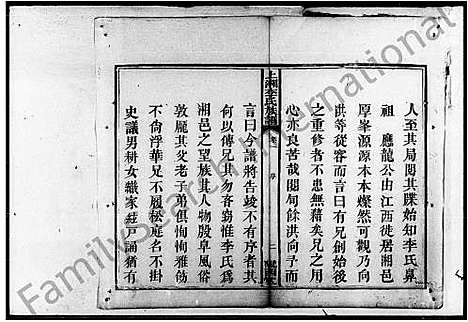 人至其局閱其牒始知李氏鼻
祖　應龍公由江西徙居湘邑
厚峯源源本本燦然可觀乃向
洪等從容而言曰有兄創始後
之重修者不患無藉矣兄之用
心亦良苦哉閱旬餘洪向予而
上湘李氏族譜
卷
序
二
言曰今譜將告竣不可無序者其
何以傳兄其勿吝窃惟李氏為
湘邑之望族其人物殷阜風俗
敦厖其父老子弟俱恂恂雅飭
不尚浮華足不履松庭名不掛
史議男耕女織家絃戶誦猶有
FamilySearch International